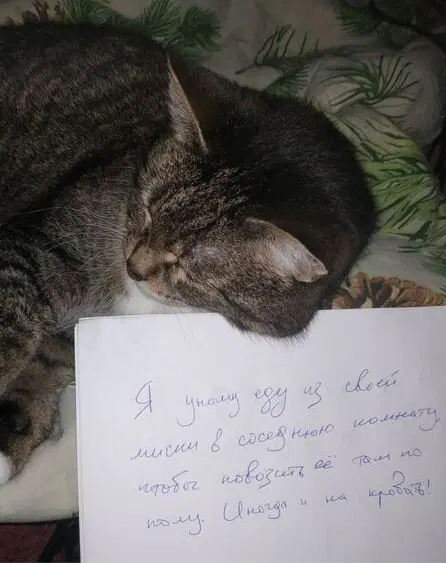 Я уношу еду из своей
миски в соседнюю комнату,
чтобы повозить её там по
полу. Иногда и на кровать!